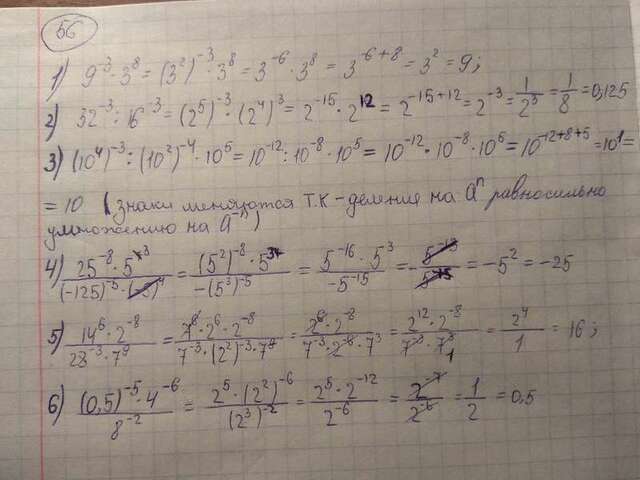 56
1) 9⁻³·3⁸ = (3²)⁻³·3⁸ = 3⁻⁶·3⁸ = 3⁻⁶⁺⁸ = 3² = 9;
2) 32⁻³ : 16⁻³ = (2⁵)⁻³·(2⁴)³ = 2⁻¹⁵·2¹² = 2⁻¹⁵⁺¹² = 2⁻³ = 1/2³ = 1/8 = 0,125
3) (10⁴)⁻³ : (10²)⁻⁴·10⁵ = 10⁻¹² : 10⁻⁸·10⁵ = 10⁻¹²·10⁻⁸·10⁵ = 10⁻¹²⁺⁸⁺⁵ = 10¹ =
= 10 (знаки меняются т.к - деление на aⁿ равносильно
умножению на a⁻ⁿ)
4) 25⁻⁸·5³/(-125)⁻⁵ = (5²)⁻⁸·5³/-(5³)⁻⁵ = 5⁻¹⁶·5³/-5⁻¹⁵ = -5² = -25
5) 14⁶·2⁻⁸/28⁻³·7⁹ = 7⁶·2⁶·2⁻⁸/7⁻³·(2²)⁻³·7⁹ = 2⁶·2⁻⁸/7⁻³·2⁻⁶·7³ = 2¹²·2⁻⁸/7⁻³·7³ = 2⁴/1 = 16;
6) (0,5)⁻⁵·4⁻⁶/8⁻² = 2⁵·(2²)⁻⁶/(2³)⁻² = 2⁵·2⁻¹²/2⁻⁶ = 2⁻⁷/2⁻⁶ = 1/2 = 0,5